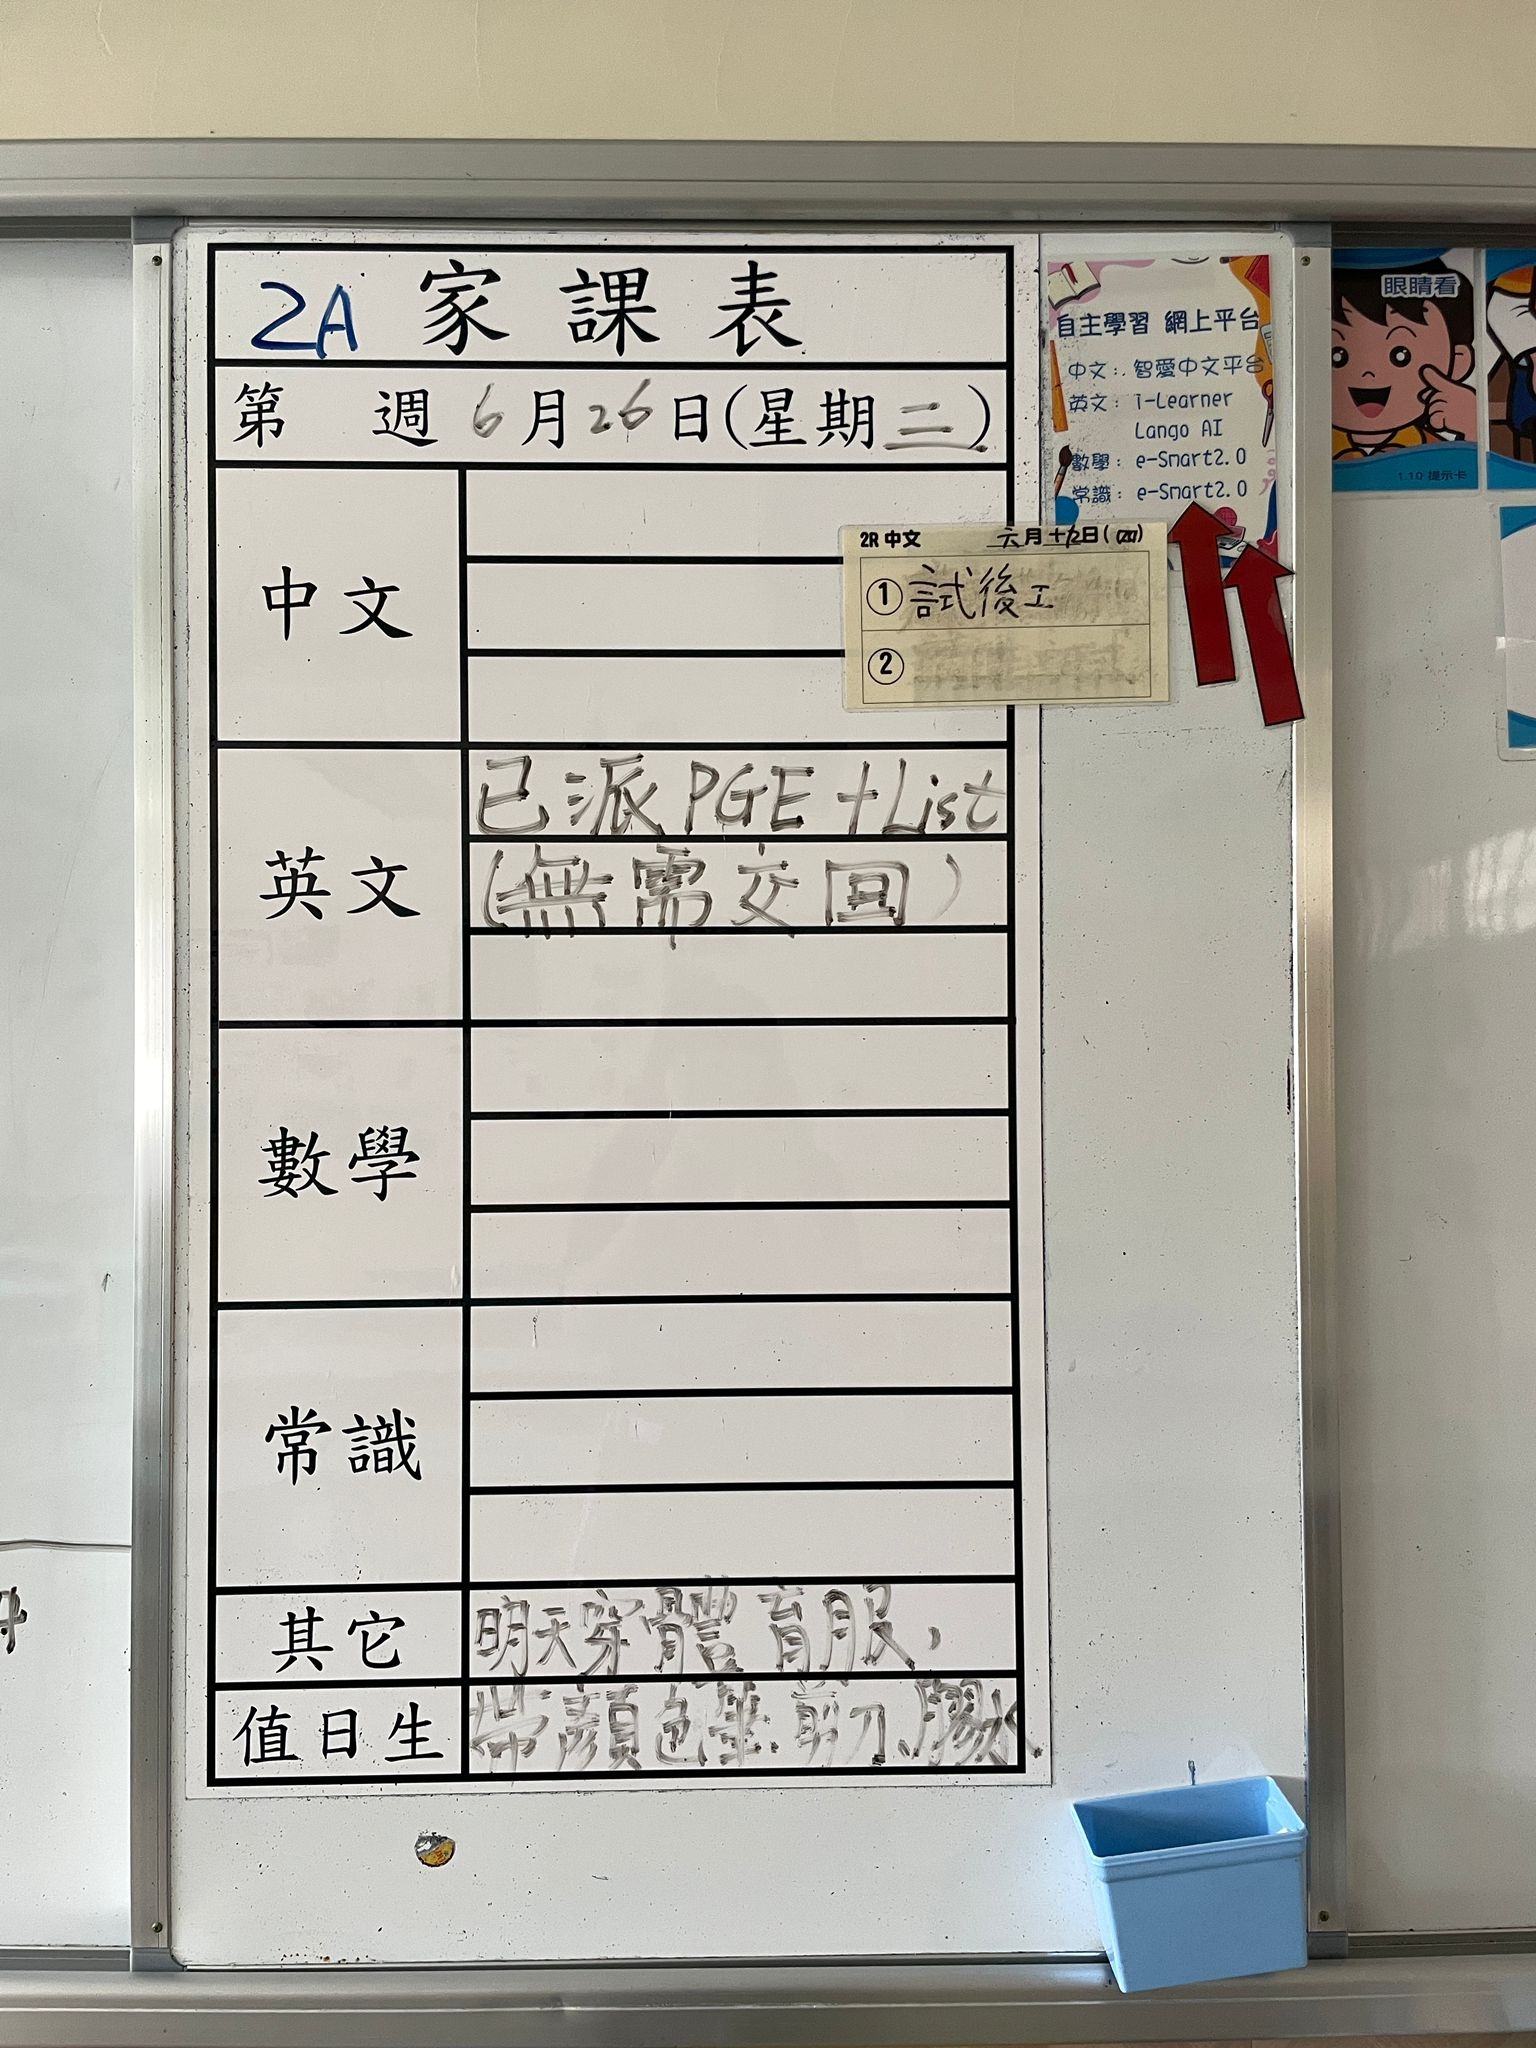 2A 家課表
第 週 6月26日(星期三)
中文
英文
已派PGE+List
(無需交回)
數學
常識
其它
明天穿體育服，
值日生
帶顏色筆、剪刀、膠水
自主學習 網上平台
中文：智愛中文平台
英文：i-Learner
Lango AI
數學：e-Smart2.0
常識：e-Smart2.0
2R 中文 六月
① 試後工
②
眼睛看
1.10 提示卡